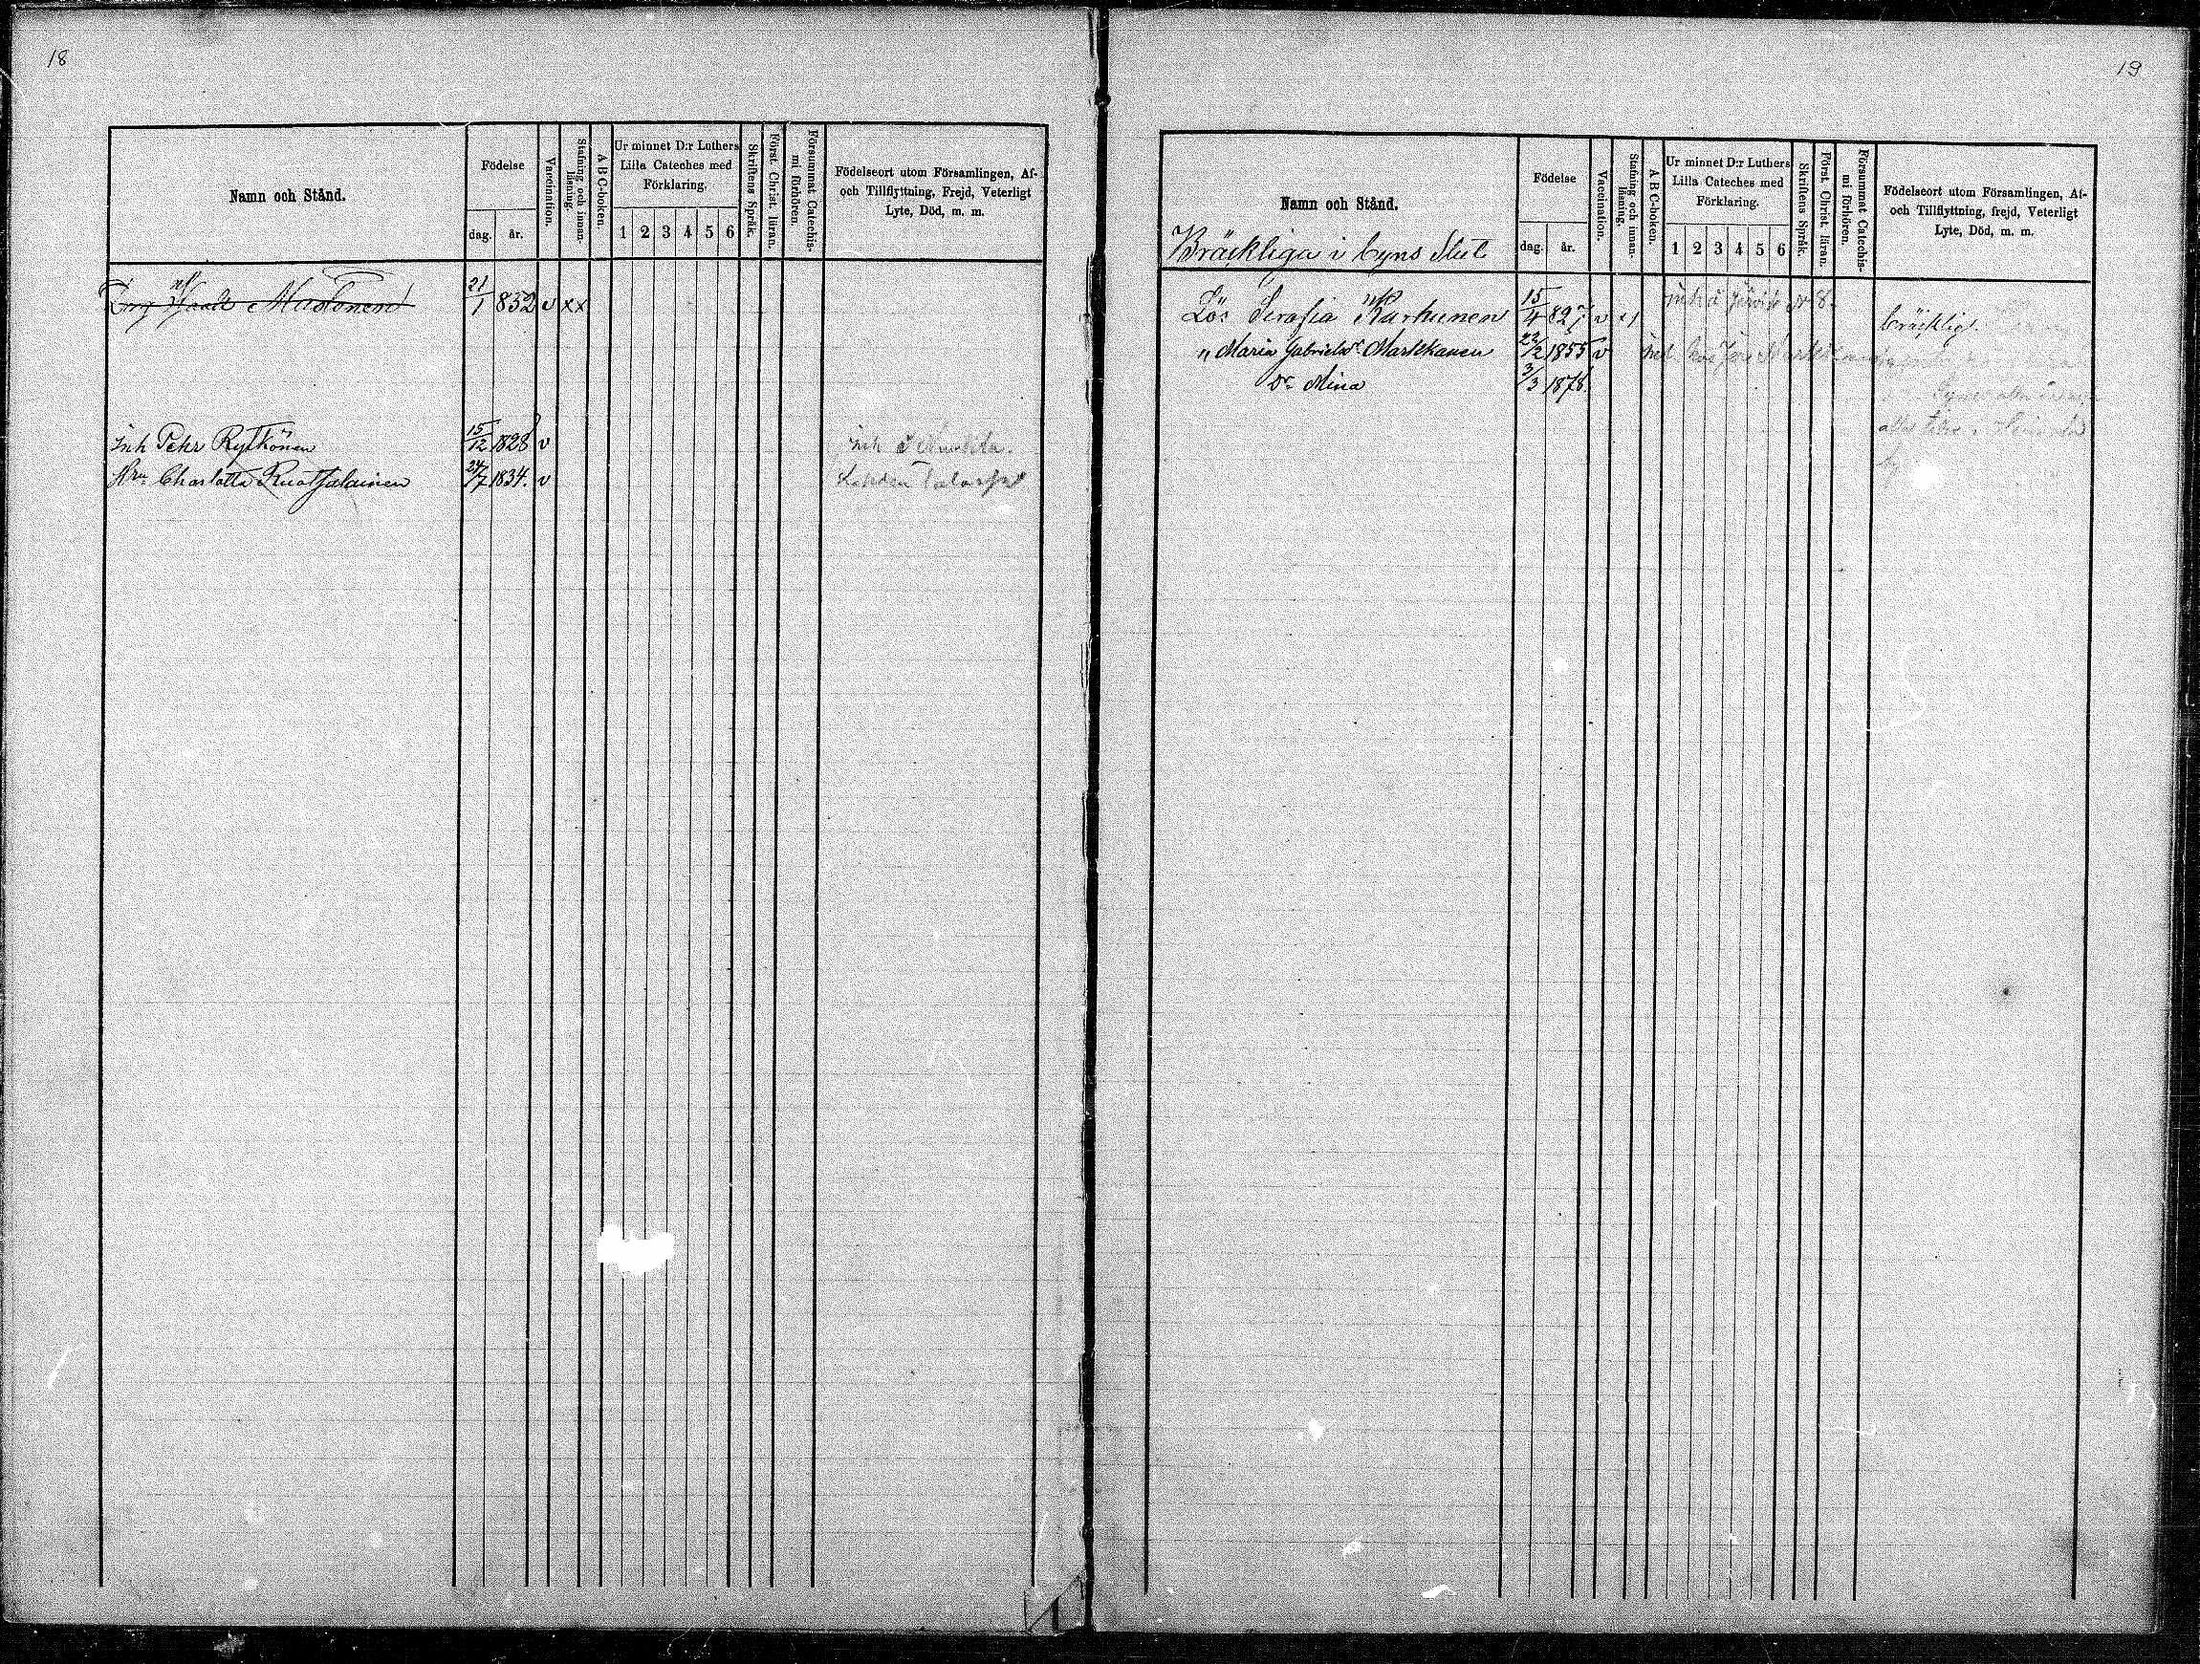 18
Namn och Stånd.
Födelse
dag. år.
Vaccination.
Stafning och innan-läsning.
A B C-boken.
Ur minnet D:r Luthers
Lilla Cateches med
Förklaring.
1 2 3 4 5 6
Skriftens Språk.
Först. Christ. läran.
Försummat Catechis-
mi förhören.
Födelseort utom Församlingen, Af-
och Tillflyttning, Frejd, Veterligt
Lyte, Död, m. m.
21/1 852 v xx
Inh Pehr Rytkönen 15/12 1828 v inh
Hru Charlotta Ruotsalainen 24/7 1834. v
19
Namn och Stånd.
Bräckliga i byns Slut
Födelse
dag. år.
Vaccination.
Stafning och innan-
läsning.
A B C-boken.
Ur minnet D:r Luthers
Lilla Cateches med
Förklaring.
1 2 3 4 5 6
Skriftens Språk.
Först. Christ. läran.
Försummat Catechis-
mi förhören.
Födelseort utom Församlingen, Af-
och Tillflyttning, frejd, Veterligt
Lyte, Död, m. m.
Lös Serafia Karhunen 15/4 827 v inh i 8. bräcklig.
" Maria Gabrielsdr Martikanen 22/2 1855 v
Dr Mina 3/3 1878.